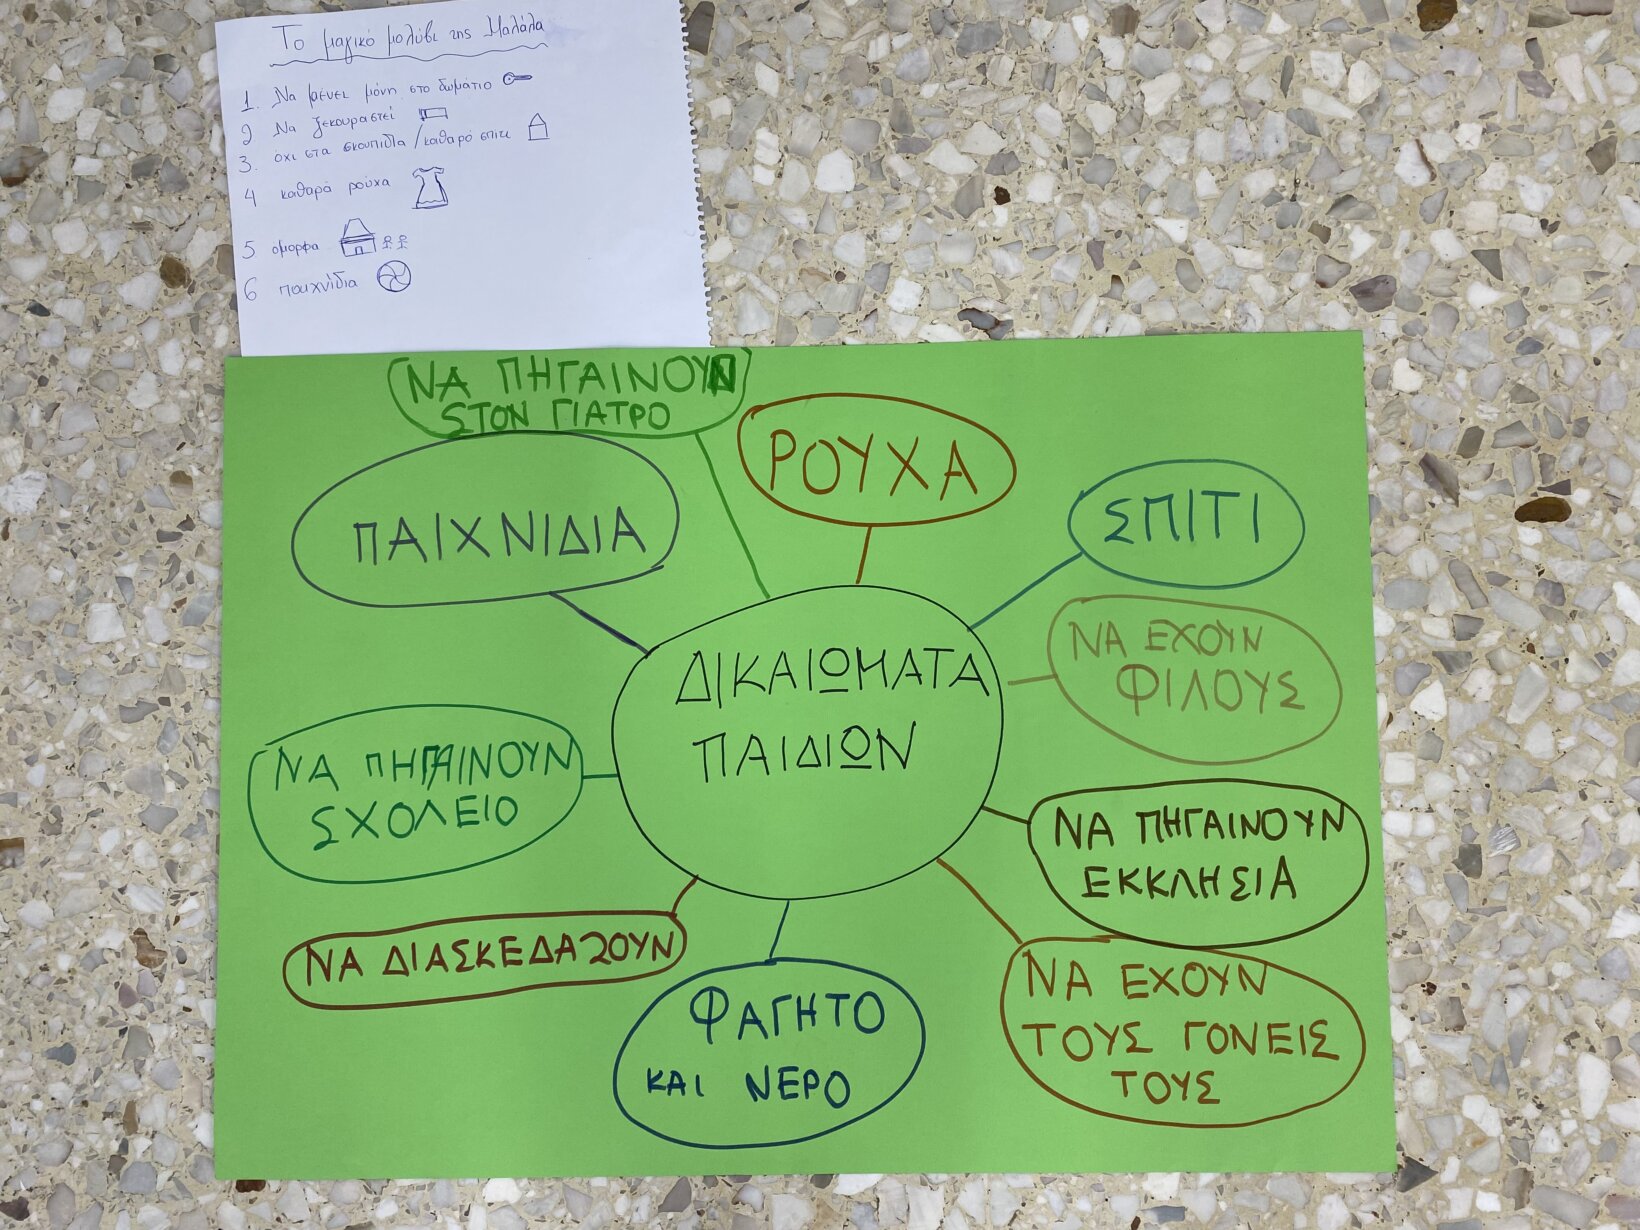 Το μαγικό μολύβι της Μαλάλα
1. Να μένει μόνη στο δωμάτιο
2 Να ξεκουραστεί
3. όχι στα σκουπίδια / καθαρό σπίτι
4 καθαρά ρούχα
5 όμορφα
6 παιχνίδια
ΝΑ ΠΗΓΑΙΝΟΥΝ
ΣΤΟΝ ΓΙΑΤΡΟ
ΡΟΥΧΑ
ΣΠΙΤΙ
ΠΑΙΧΝΙΔΙΑ
ΝΑ ΕΧΟΥΝ
ΦΙΛΟΥΣ
ΔΙΚΑΙΩΜΑΤΑ
ΠΑΙΔΙΩΝ
ΝΑ ΠΗΓΑΙΝΟΥΝ
ΣΧΟΛΕΙΟ
ΝΑ ΠΗΓΑΙΝΟΥΝ
ΕΚΚΛΗΣΙΑ
ΝΑ ΔΙΑΣΚΕΔΑΖΟΥΝ
ΦΑΓΗΤΟ
ΚΑΙ ΝΕΡΟ
ΝΑ ΕΧΟΥΝ
ΤΟΥΣ ΓΟΝΕΙΣ
ΤΟΥΣ